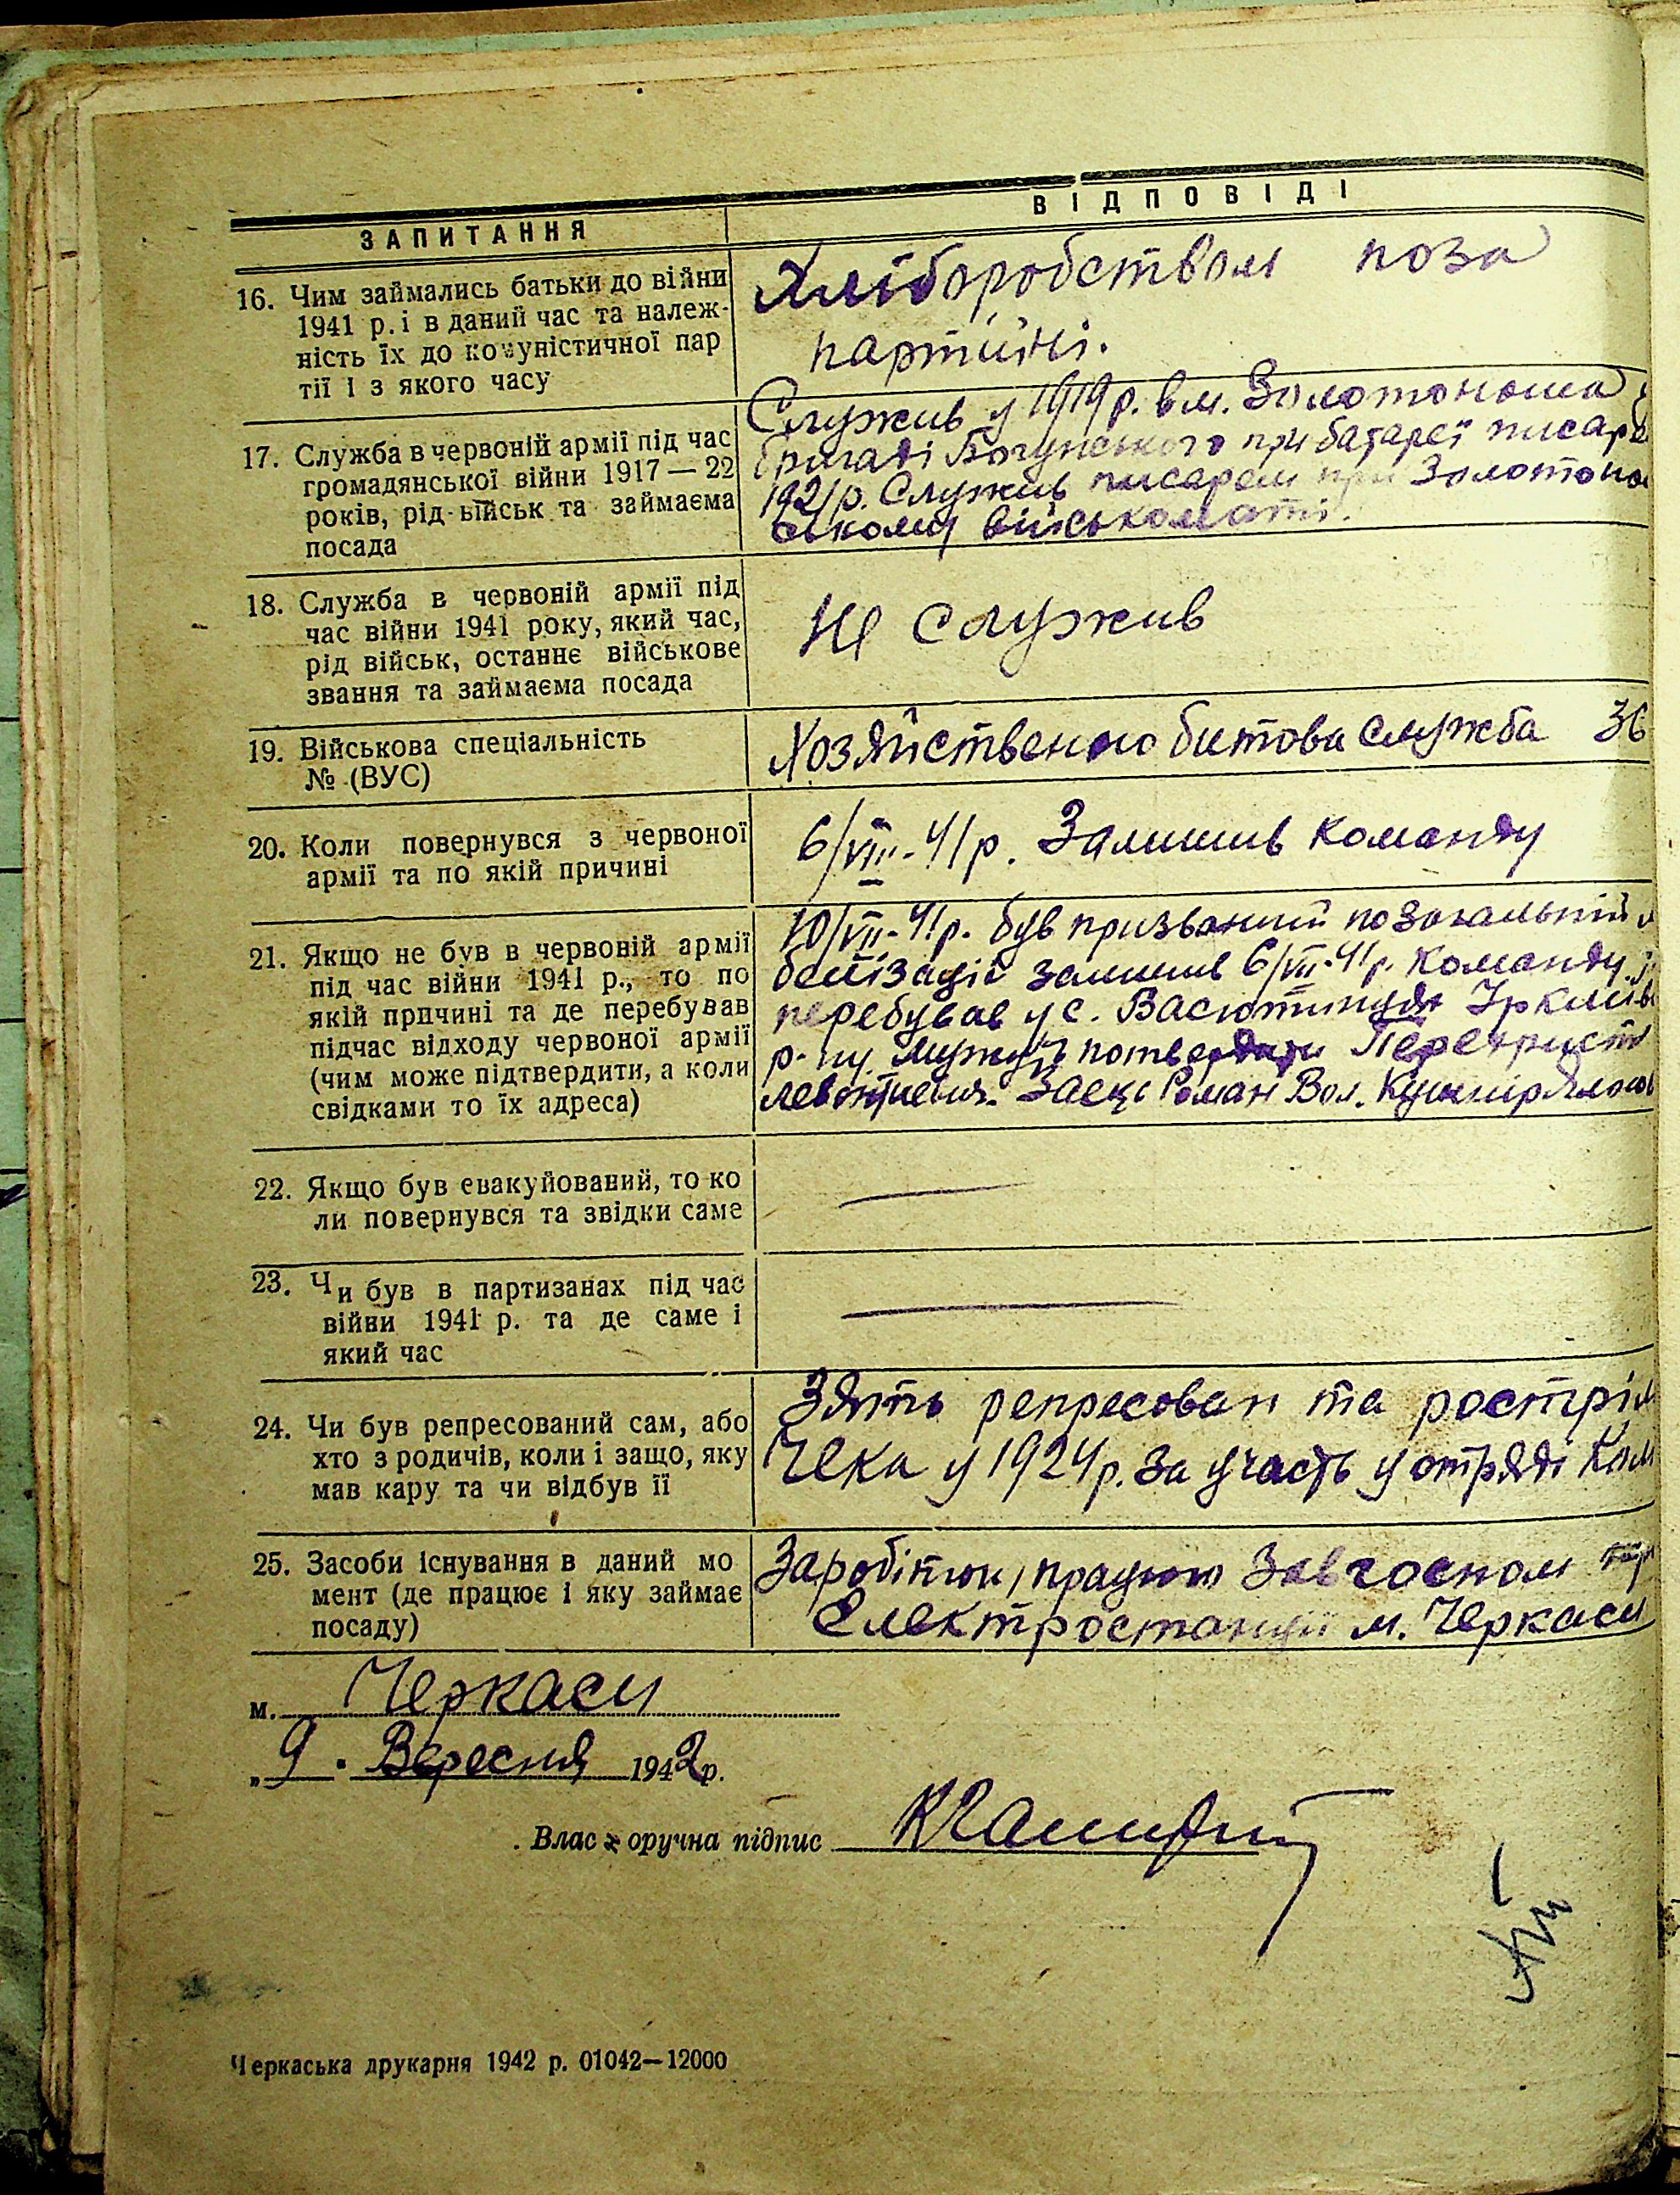 ЗАПИТАННЯ
ВІДПОВІДІ
16. Чим займались батьки до війни
1941 р. і в даний час та належ-
ність їх до комуністичної пар
тії і з якого часу
Хліборобством поза
партійні.
17. Служба в червоній армії під час
громадянської війни 1917 — 22
років, рід військ та займаєма
посада
Служив у 1919 р. в м. Золотоноша
бригаді Богунського при батареї писар
1921 р. Служив писарем при Золотоно
ському військоматі.
18. Служба в червоній армії під
час війни 1941 року, який час,
рід військ, останнє військове
звання та займаєма посада
Не служив
19. Військова спеціальність
№ (ВУС)
Хозяйственно битова служба 36
20. Коли повернувся з червоної
армії та по якій причині
6/VIII-41 р. Залишив команду
21. Якщо не був в червоній армії
під час війни 1941 р., то по
якій причині та де перебував
підчас відходу червоної армії
(чим може підтвердити, а коли
свідками то їх адреса)
10/VII-41 р. був призваний по загальній
белізації залишив 6/VIII-41 р. команду.
перебував у с. Васютинцях Іркліїв
р-ну. можуть потвердити
Заєць Роман Вол. Кушнір
22. Якщо був евакуйований, то ко
ли повернувся та звідки саме
—
23. Чи був в партизанах під час
війни 1941 р. та де саме і
який час
—
24. Чи був репресований сам, або
хто з родичів, коли і защо, яку
мав кару та чи відбув її
Зять репресован та розстріл
Чека у 1924 р. за участь у отряді Ком
25. Засоби існування в даний мо
мент (де працює і яку займає
посаду)
Заробітки, працюю Завгоспом при
Електростанції м. Черкаси
м. Черкаси
„ 9 . Вересня 1942 р.
Влас оручна підпис
Черкаська друкарня 1942 р. 01042—12000